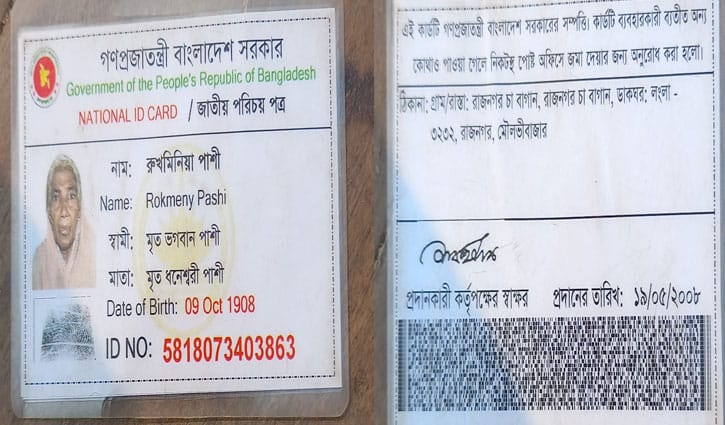 গণপ্রজাতন্ত্রী বাংলাদেশ সরকার
Government of the People's Republic of Bangladesh
NATIONAL ID CARD / জাতীয় পরিচয় পত্র
নাম: রুখমিনিয়া পাশী
Name: Rokmeny Pashi
স্বামী: মৃত ভগবান পাশী
মাতা: মৃত ধনেশ্বরী পাশী
Date of Birth: 09 Oct 1908
ID NO: 5818073403863
এই কার্ডটি গণপ্রজাতন্ত্রী বাংলাদেশ সরকারের সম্পত্তি। কার্ডটি ব্যবহারকারী ব্যতীত অন্য
কোথাও পাওয়া গেলে নিকটস্থ পোষ্ট অফিসে জমা দেয়ার জন্য অনুরোধ করা হলো।
ঠিকানা: গ্রাম/রাস্তা: রাজনগর চা বাগান, রাজনগর চা বাগান, ডাকঘর: লংলা -
৩২৩২, রাজনগর, মৌলভীবাজার
প্রদানকারী কর্তৃপক্ষের স্বাক্ষর প্রদানের তারিখ: ১৯/০৫/২০০৮